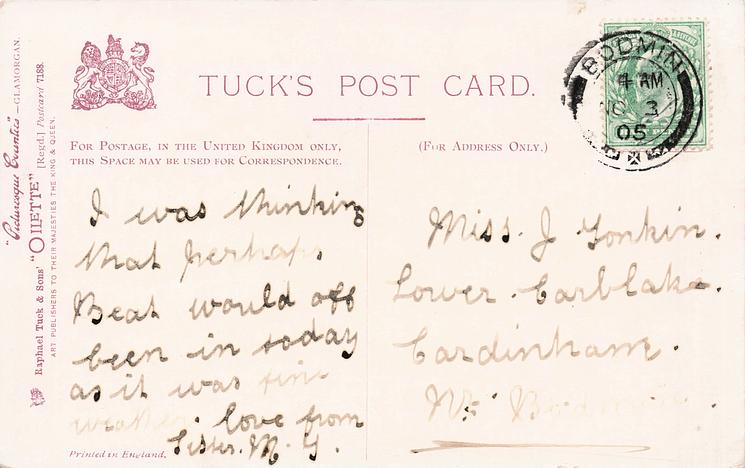 "Picturesque Counties"—GLAMORGAN.
Raphael Tuck & Sons' "OILETTE" [Regd.] Postcard 7188.
ART PUBLISHERS TO THEIR MAJESTIES THE KING & QUEEN.
TUCK'S POST CARD.
FOR POSTAGE, IN THE UNITED KINGDOM ONLY,
THIS SPACE MAY BE USED FOR CORRESPONDENCE.
(FOR ADDRESS ONLY.)
BODMIN
4 AM
NO 3
05
I was thinking
that perhaps
Beat would off
been in today
as it was fine
weather. love from
Sister. M. G.
Miss. J Tonkin.
Lower. Carblake.
Cardinham.
Nr Bodmin.
Printed in England.